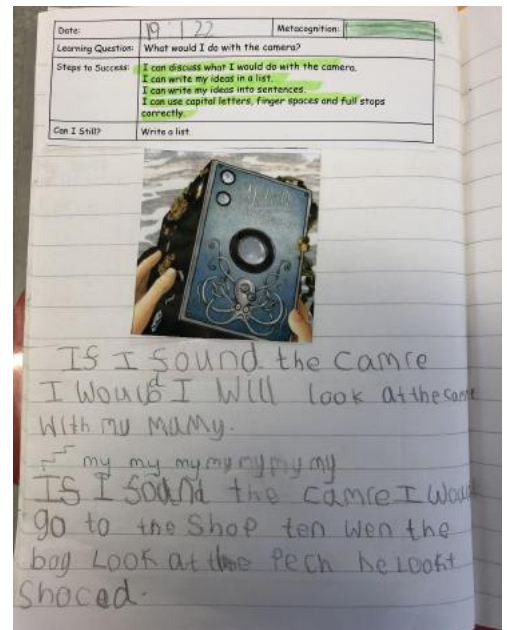 Date: 19.1.22 Metacognition:
Learning Question: What would I do with the camera?
Steps to Success: I can discuss what I would do with the camera.
I can write my ideas in a list.
I can write my ideas into sentences.
I can use capital letters, finger spaces and full stops
correctly.
Can I Still? Write a list.
If I found the camre
I would I will look at the
with my mamy.
my my my my my my my
If I found the camre I woud
go to the Shop ten wen the
boy Look at the Pech he Lookt
Shoced.